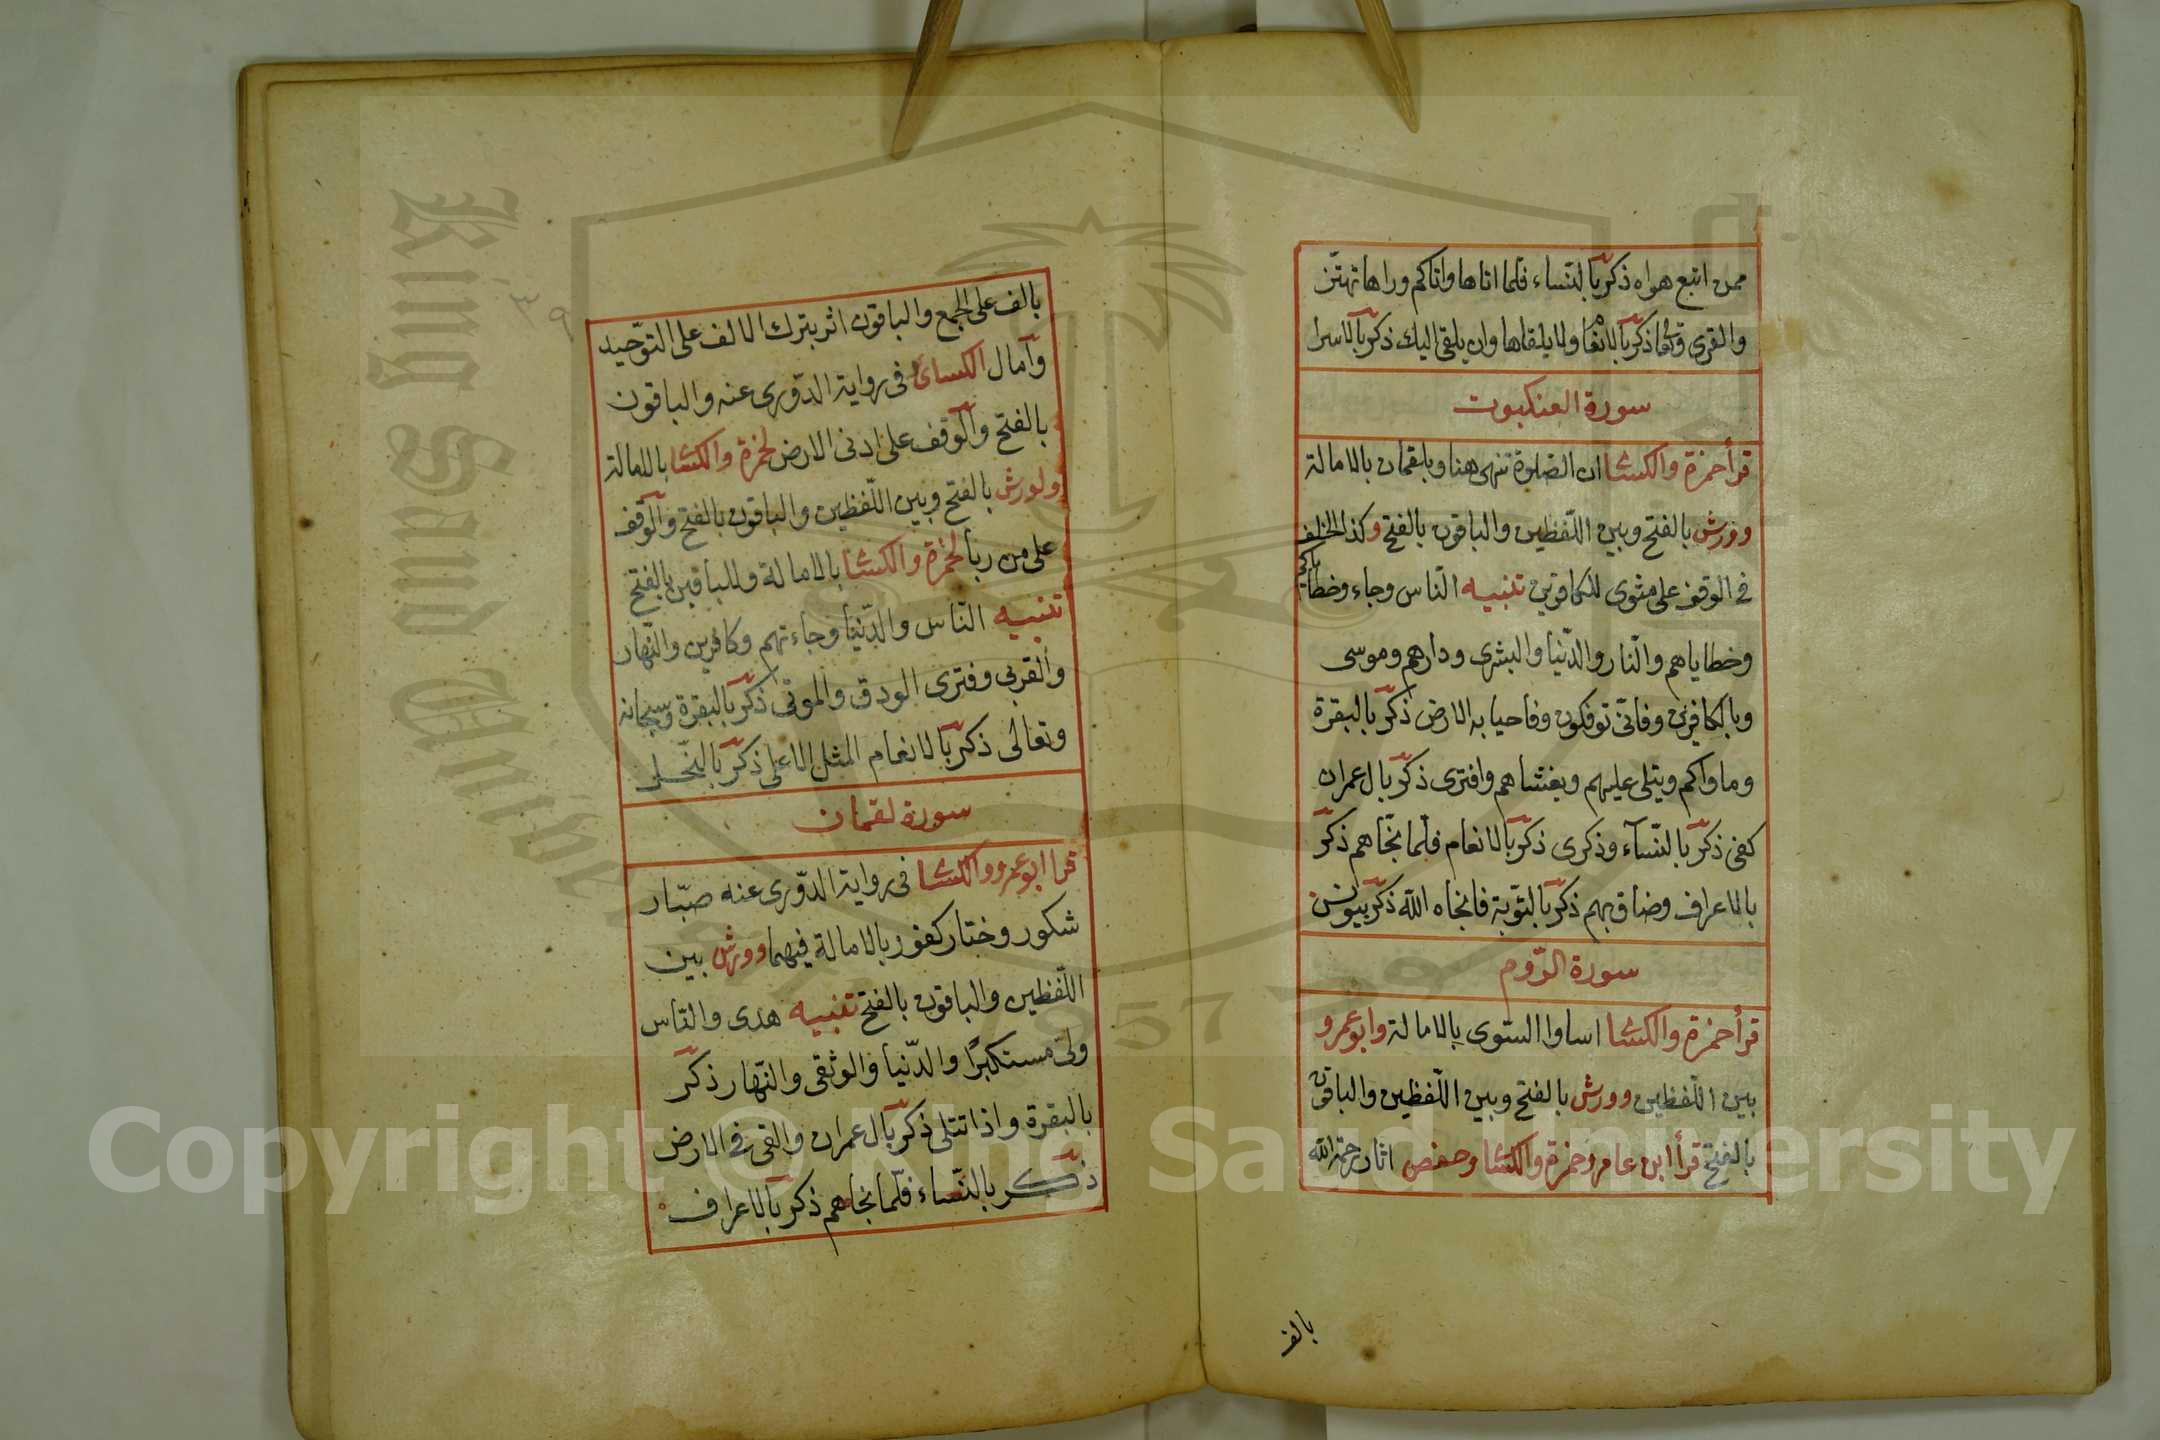 ممن اتبع هواه ذكر بالنساء فلما اتاها واتاكم وراها تهتز
والقرى وكما ذكر بالانعام ولا يلقاها وان يلقى اليك ذكر بالاسرا
سورة العنكبوت
قرأ حمزة والكسائ ان الصلوة تنهى هنا وبلقمان بالامالة
وورش بالفتح وبين اللفظين والباقون بالفتح وكذا الخلف
في الوقف على مثوى للكافرين تنبيه الناس وجاء وخطاياكم
وخطاياهم والنار والدنيا والبشرى ودارهم وموسى
وبالكافرين وفانى توفكون وفاحيا به الارض ذكر بالبقرة
وماواكم ويتلى عليهم ويغشاهم وافترى ذكر بال عمران
كفى ذكر بالنسآء وذكرى ذكر بالانعام فلما نجاهم ذكر
بالاعراف وضاق بهم ذكر بالتوبة فانجاه الله ذكر بيونس
سورة الروم
قرأ حمزة والكسائ اساوا السوى بالامالة وابو عمرو
بين اللفظين وورش بالفتح وبين اللفظين والباقون
بالفتح قرأ ابن عامر وحمزة والكسائ وحفص اثار رحمة الله
بالف
٣٩
بالف على الجمع والباقون اثر بترك الالف على التوحيد
وآمال الكسائ في رواية الدورى عنه والباقون
بالفتح والوقف على ادنى الارض لحمزة والكسائ بالامالة
ولورش بالفتح وبين اللفظين والباقون بالفتح والوقف
على من ربا لحمزة والكسائ بالامالة وللباقين بالفتح
تنبيه الناس والدنيا وجاءتهم وكافرين والنهار
والقربى وفترى الودق والموتى ذكر بالبقرة وسبحانه
وتعالى ذكر بالانعام المثل الاعلى ذكر بالنحل
سورة لقمان
قرا ابو عمرو والكسائ في رواية الدورى عنه صبار
شكور وختار كفور بالامالة فيهما وورش بين
اللفظين والباقون بالفتح تنبيه هدى والناس
ولى مستكبرا والدنيا والوثقى والنهار ذكر
بالبقرة واذا تتلى ذكر بال عمران والقى في الارض
ذكر بالنساء فلما نجاهم ذكر بالاعراف
King Saud University
1957
Copyright © King Saud University